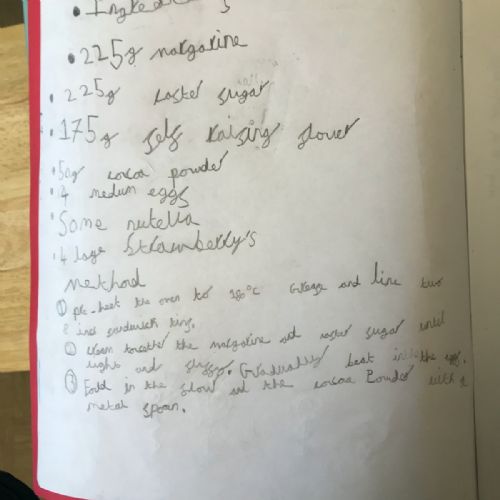 • Ingredients
• 225g margarine
• 225g caster sugar
• 175g self raising flower
• 50g cocoa powder
• 4 medium eggs
• Some nutella
• 4 large Strawberry's
method
① pre-heat the oven to 180°C Grease and line two
8 inch sandwich tins.
② cream together the margarine and caster sugar until
light and fluffy. Gradually beat in the eggs.
③ Fold in the flour and the cocoa Powder with a
metal spoon.